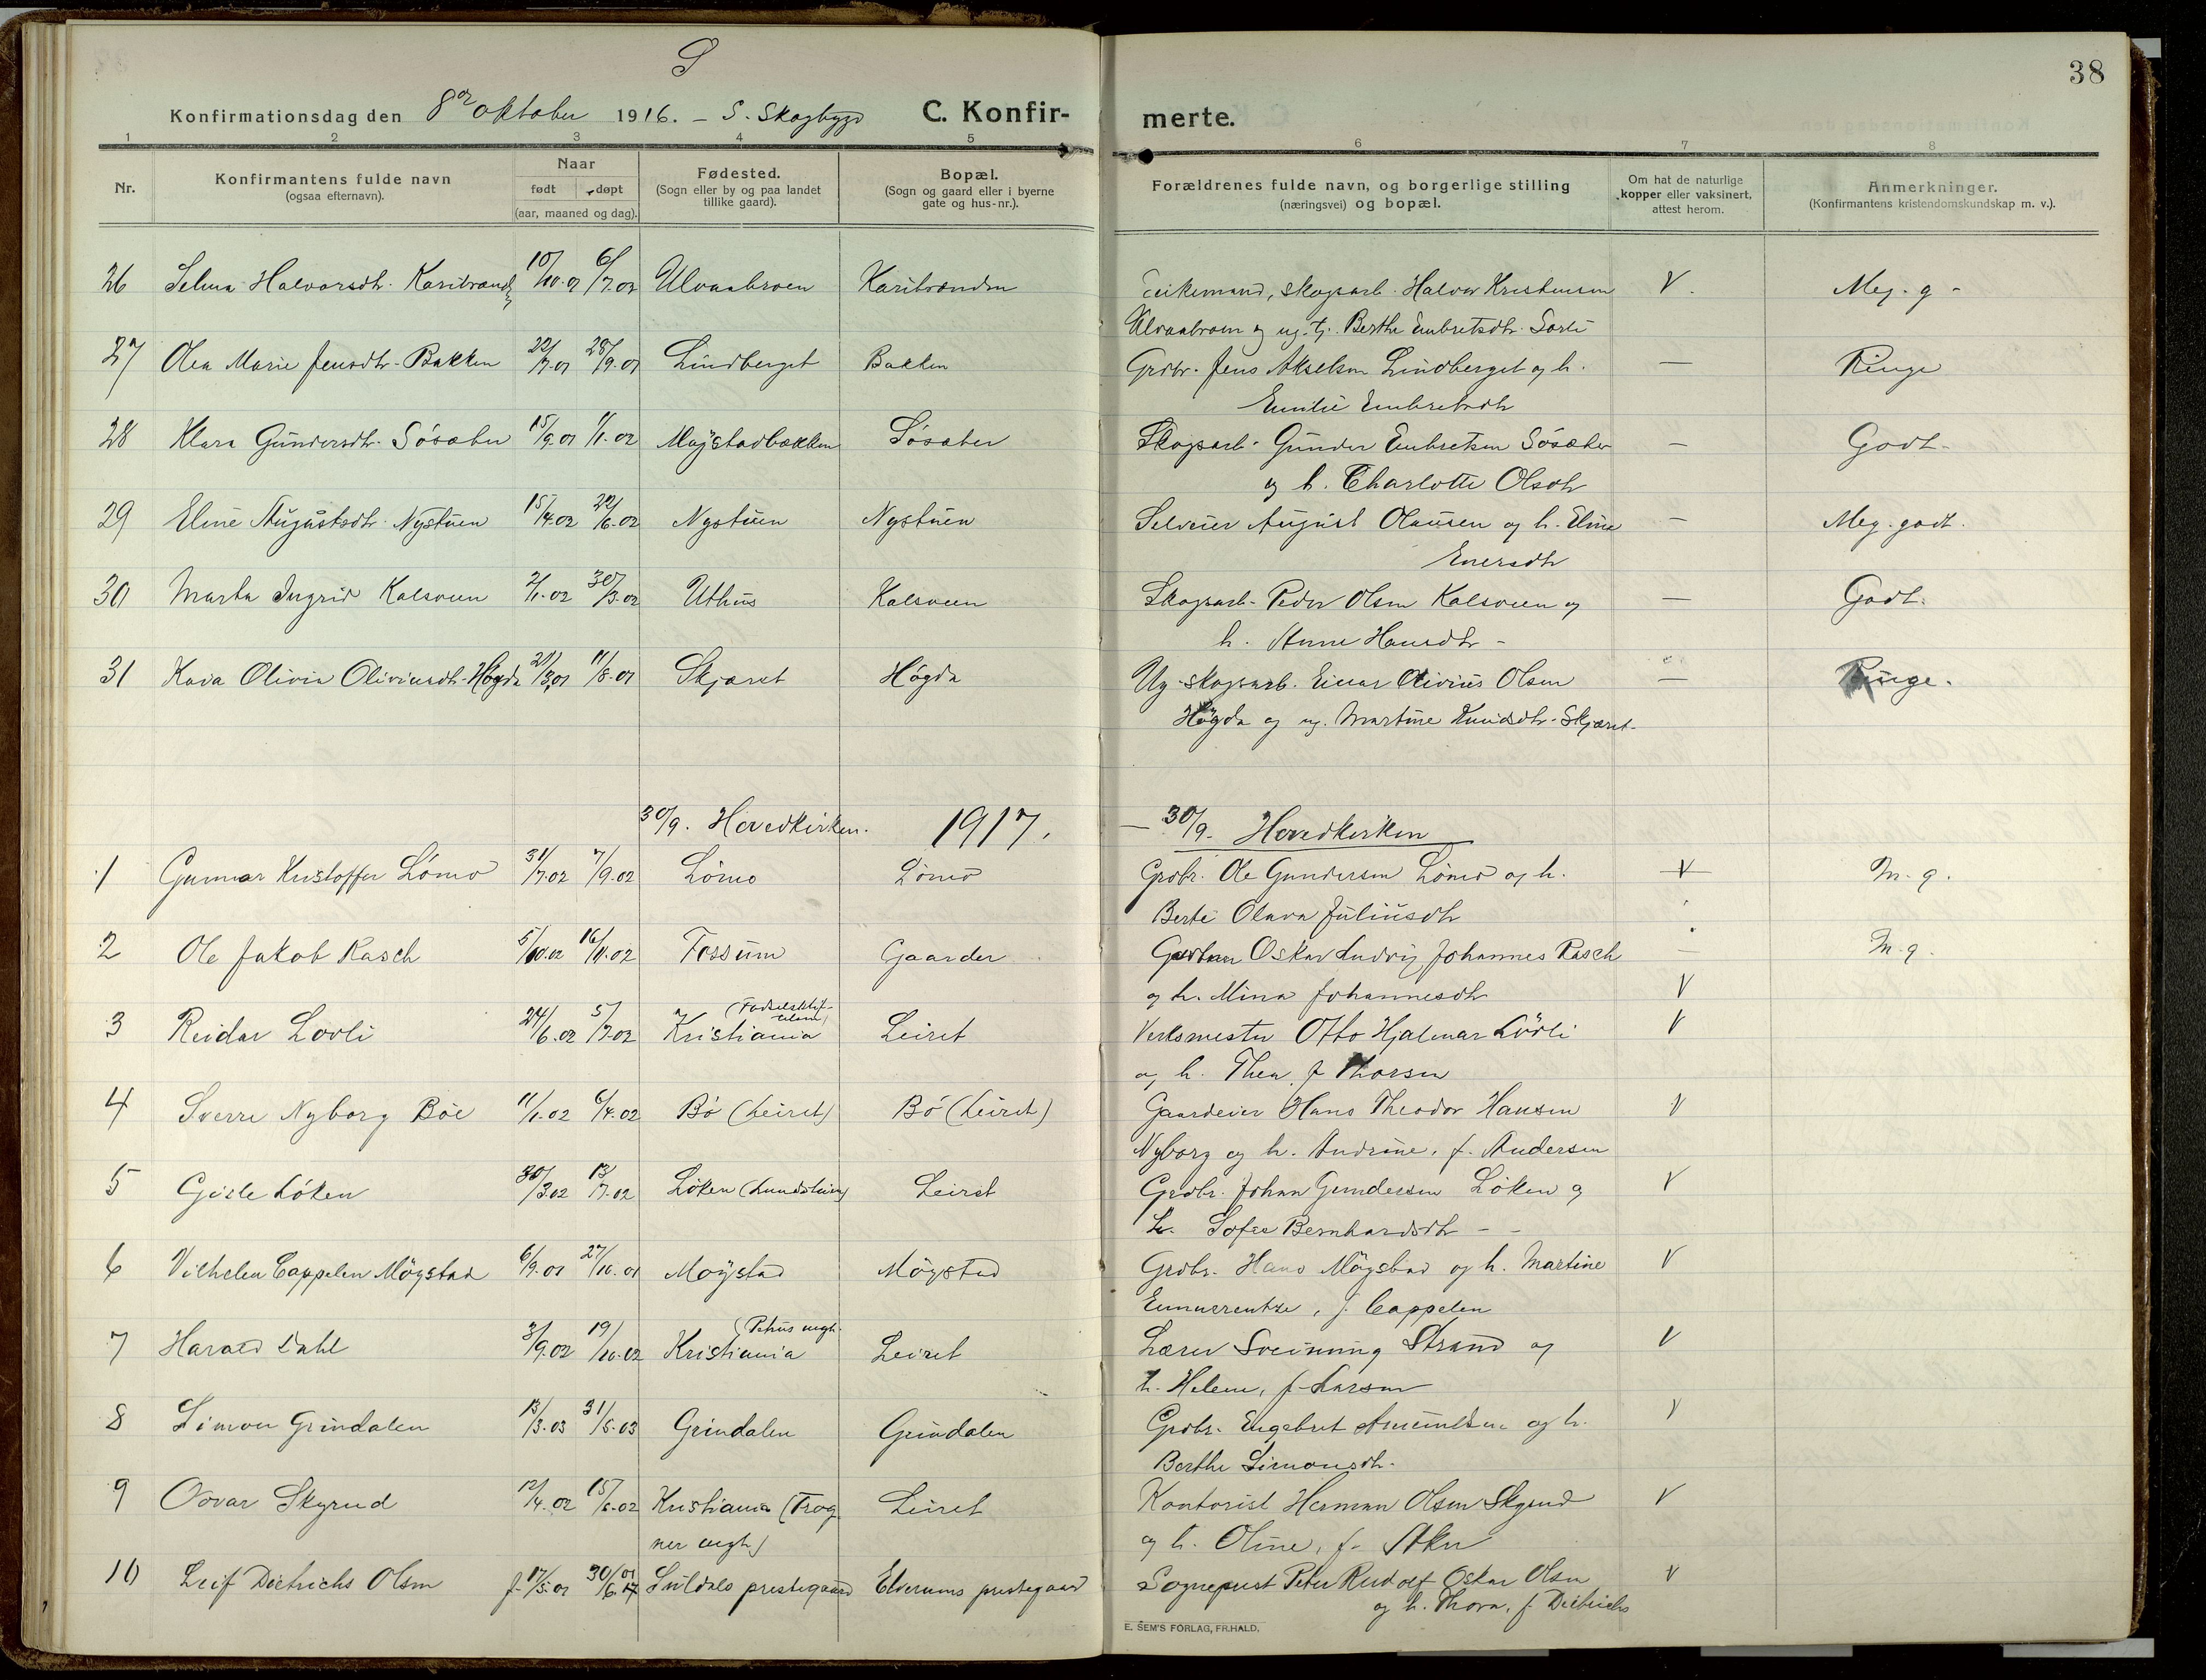 S
38
Konfirmationsdag den 8de oktober 1916. – S. Skogbygd
C. Konfirmerte.
1 2 3 4 5 6 7 8
Nr.
Konfirmantens fulde navn
(ogsaa efternavn).
Naar
født døpt
(aar, maaned og dag).
Fødested.
(Sogn eller by og paa landet
tillike gaard).
Bopæl.
(Sogn og gaard eller i byerne
gate og hus-nr.).
Forældrenes fulde navn, og borgerlige stilling
(næringsvei) og bopæl.
Om hat de naturlige
kopper eller vaksinert,
attest herom.
Anmerkninger.
(Konfirmantens kristendomskundskap m. v.).
26 Selma Halvorsdtr. Karibranden 10/10.01 6/7.02 Ulvaabroen Karibranden Enkemand, skogsarb. Halvor Kristensen V. Meg. g -
Ulvaabroen og ug. tj. Berthe Embretsdtr. Sorli
27 Olea Marie Jensdtr. Bakken 22/7.01 28/9.01 Lindberget Bakken Grdbr. Jens Akselsen Lindberget og h. — Ringe
Emilie Embretsdtr
28 Klara Gundersdtr. Søsæter 15/9.01 1/1.02 Møystadbakken Søsæter Skogsarb. Gunder Embretsen Søsæter — Godt -
og h. Charlotte Olsdtr
29 Eline Augustsdtr. Nystuen 15/4.02 22/6.02 Nystuen Nystuen Selveier August Olausen og h. Elina — Meg. godt.
Enersdtr
30 Marta Ingrid Kalsveen 2/1.02 30/3.02 Uthus Kalsveen Skogsarb. Peder Olsen Kalsveen og — Godt.
h. Anne Hansdtr -
31 Kaia Olivia Oliviusdtr. Høgda 21/3.01 11/8.01 Skjæret Høgda Ug. skogsarb. Einar Olivius Olsen — Ringe.
Høgda og ug. Martine Knudsdtr. Skjæret -
30/9. Hovedkirken. 1917. — 30/9. Hovedkirken
1 Gunnar Kristoffer Lømo 31/7.02 7/9.02 Lømo Lømo Grdbr. Ole Gundersen Lømo og h. V M. g.
Berte Olava Juliusdtr
2 Ole Jakob Rasch 5/10.02 16/11.02 Fossum Gaarder Gartner Oskar Ludvig Johannes Rasch — M. g.
og h. Mina Johannesdtr V
3 Reidar Lovli 24/6.02 5/7.02 (Fødselsstif-
telsen)
Kristiania Leiret Verksmester Otto Hjalmar Lövli V
og h. Thea f. Thorsen
4 Sverre Nyborg Böe 11/1.02 6/4.02 Bö (Leiret) Bö (Leiret) Gaardeier Hans Theodor Hansen V
Nyborg og h. Andrine, f. Andersen
5 Gisle Løken 30/3.02 13/7.02 Løken (Lundsteien) Leiret Grdbr. Johan Gundersen Löken og V
h. Sofie Bernhardsdtr - -
6 Vilhelm Cappelen Möystad 6/9.01 27/10.01 Moÿstad Möystad Grdbr. Hans Möystad og h. Martine V
Emmerentze, f. Cappelen
7 Harald Dahl 3/9.02 19/10.02 (Petrus mgh.
Kristiania Leiret Lærer Sveinung Strand og V
h. Helene, f. Larsen
8 Simon Grindalen 13/3.03 31/5.03 Grindalen Grindalen Grdbr. Engebret Amundsen og h. V
Berthe Simonsdtr.
9 Oovar Skyrud 12/4.02 15/6.02 Kristiania (Frog- Leiret Kontorist Herman Olsen Skyrud V
ner mgh.) og h. Oline, f. Aker
10 Leif Dietrichs Olsen f. 17/5.01 30/6.01 Suldals prestegaard Elverums prestegaard Sogneprest Peter Rudolf Oskar Olsen V
og h. Thora, f. Dietrichs
E. SEM'S FORLAG, FR.HALD.